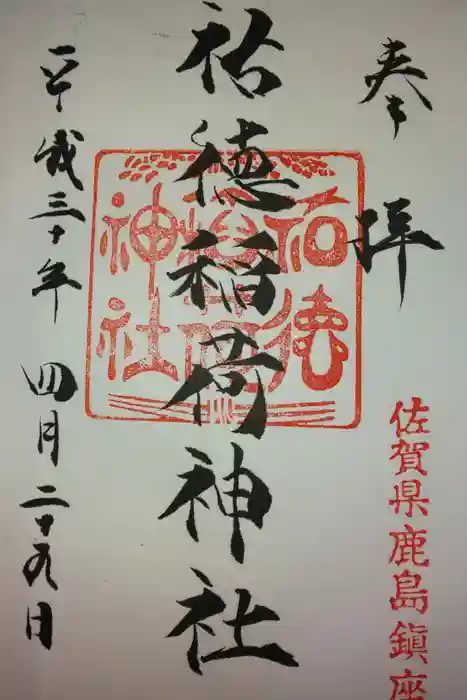 奉拝
佐賀県鹿島鎮座
祐徳稲荷神社
祐徳
稲荷
神社
平成三十年 四月二十九日